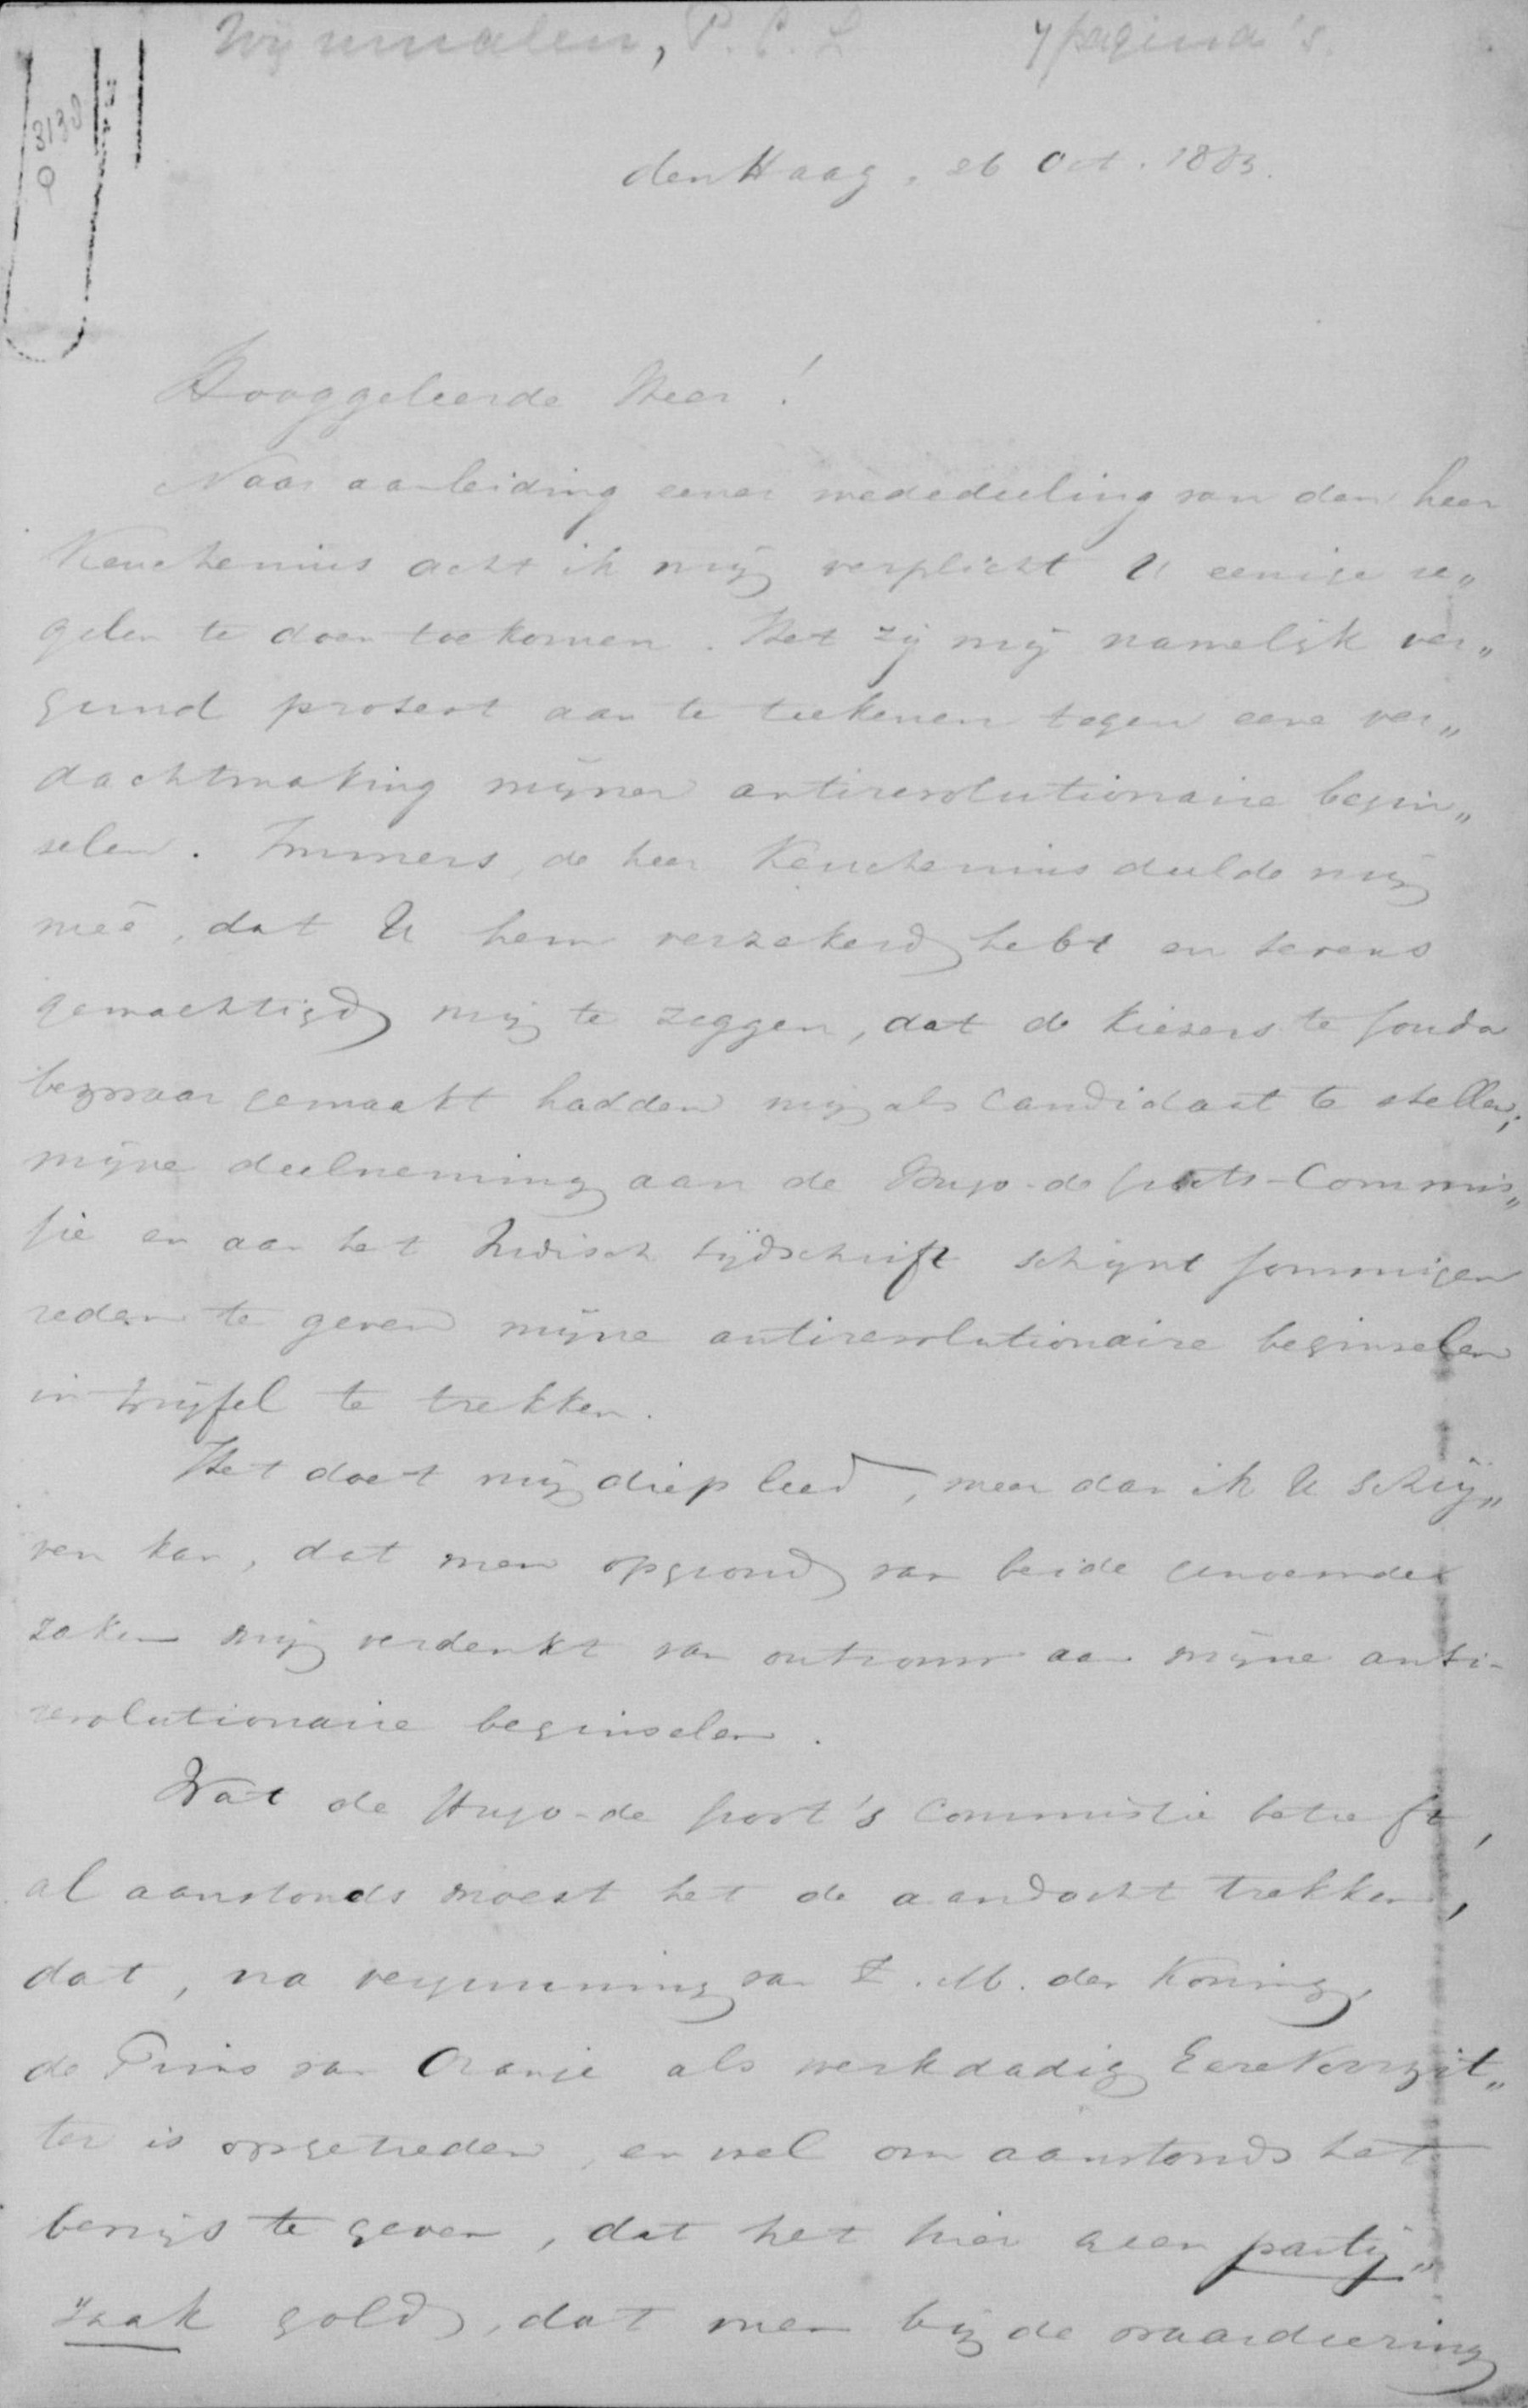 Wijnmalen, P. C. L 7 pagina's.
3138
den Haag, 26 Oct. 1883.
Hooggeleerde Heer!
Naar aanleiding eener mededeeling van den heer
Keuchenius acht ik mij verplicht U eenige re„
gelen te doen toekomen. Het zij mij namelijk ver„
gund protest aan te teekenen tegen eene ver„
dachtmaking mijner antirevolutionaire begin„
selen. Immers, de heer Keuchenius deelde mij
meê, dat U hem verzekerd hebt en tevens
gemachtigd mij te zeggen, dat de kiezers te Gouda
bezwaar gemaakt hadden mij als Candidaat te stellen;
mijne deelneming aan de Hugo-de Groots-Commis„
sie en aan het Indisch tijdschrift schijnt sommigen
reden te geven mijne antirevolutionaire beginselen
in twijfel te trekken.
Het doet mij diep leed, meer dan ik U schrij„
ven kan, dat men op grond van beide genoemde
zaken mij verdenkt van ontrouw aan mijne anti-
revolutionaire beginselen.
Wat de Hugo-de Groot's Commissie betreft,
al aanstonds moest het de aandacht trekken,
dat, na vergunning van Z. M. den Koning,
de Prins van Oranje als werkdadig Eerevoorzit„
ter is opgetreden, en wel om aanstonds het
bewijs te geven, dat het hier geen partij„
zaak gold, dat men bij de waardeering